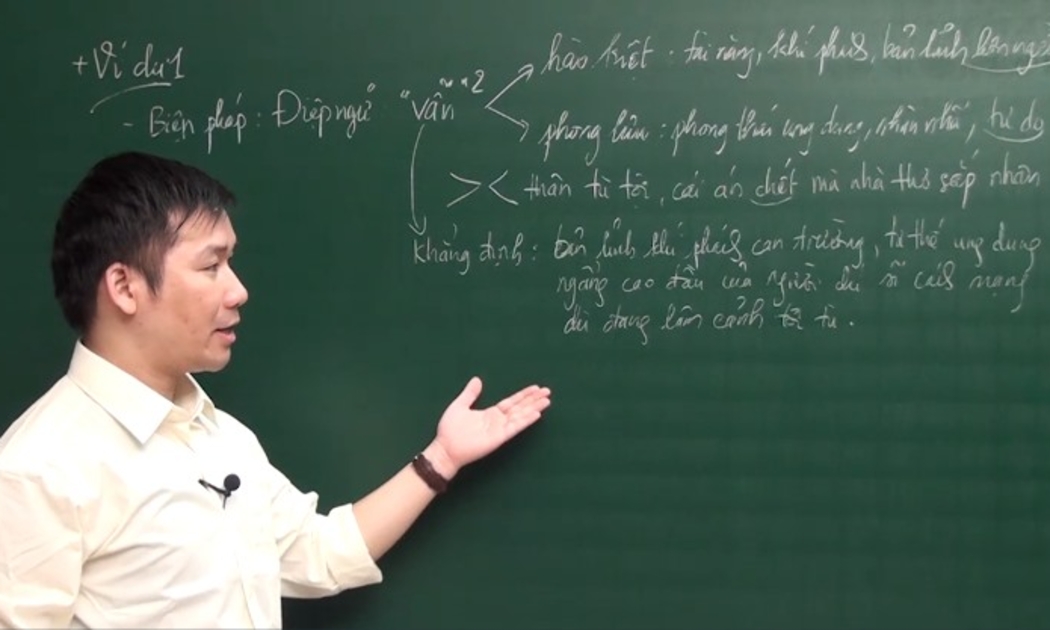 + Ví dụ 1
- Biện pháp : Điệp ngữ "vẫn" x2
hào kiệt : tài năng, khí phách, bản lĩnh hơn người
phong lưu : phong thái ung dung, nhàn nhã, tự do
>< thân tù tội, cái án chết mà nhà thơ sắp nhận
khẳng định : bản lĩnh khí phách can trường, tư thế ung dung
ngẩng cao đầu của người chí sĩ cách mạng
dù đang lâm cảnh tội tù .